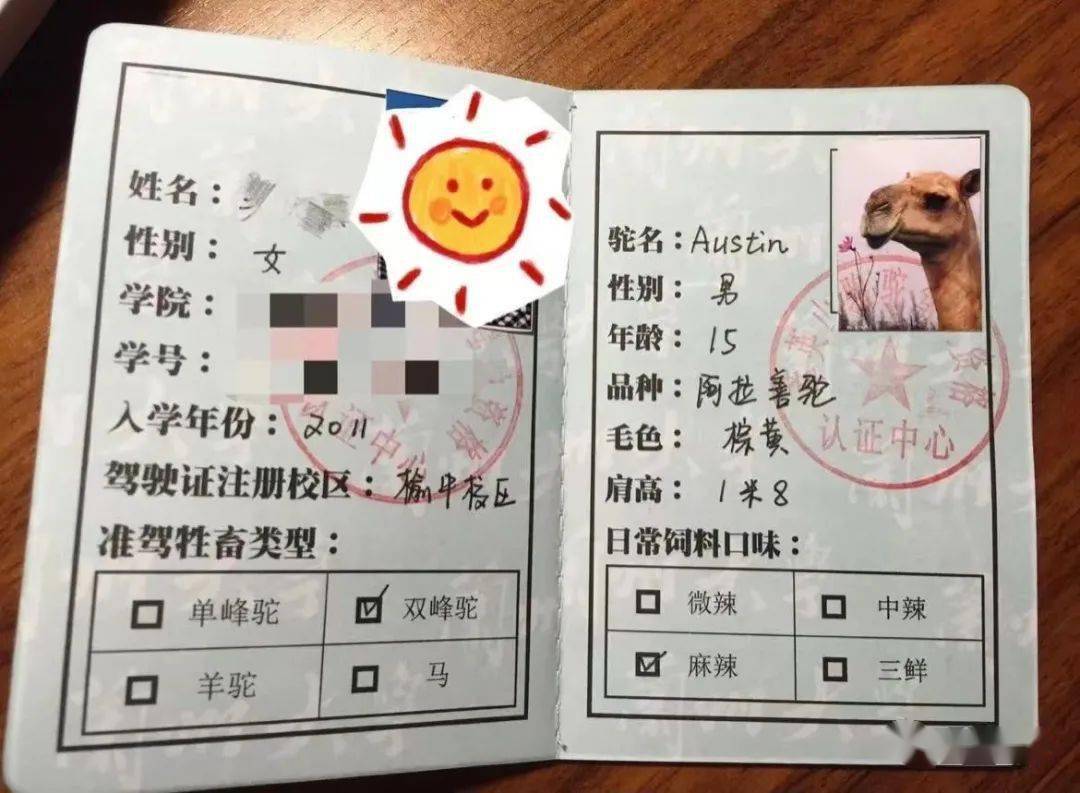 姓名：
性别：女
学院：
学号：
入学年份：2011
驾驶证注册校区：榆中校区
准驾牲畜类型：
单峰驼 双峰驼
羊驼 马
资格
认证中心
驼名：Austin
性别：男
年龄：15
品种：阿拉善驼
毛色：棕黄
肩高：1米8
日常饲料口味：
微辣 中辣
麻辣 三鲜
驼
资格
认证中心